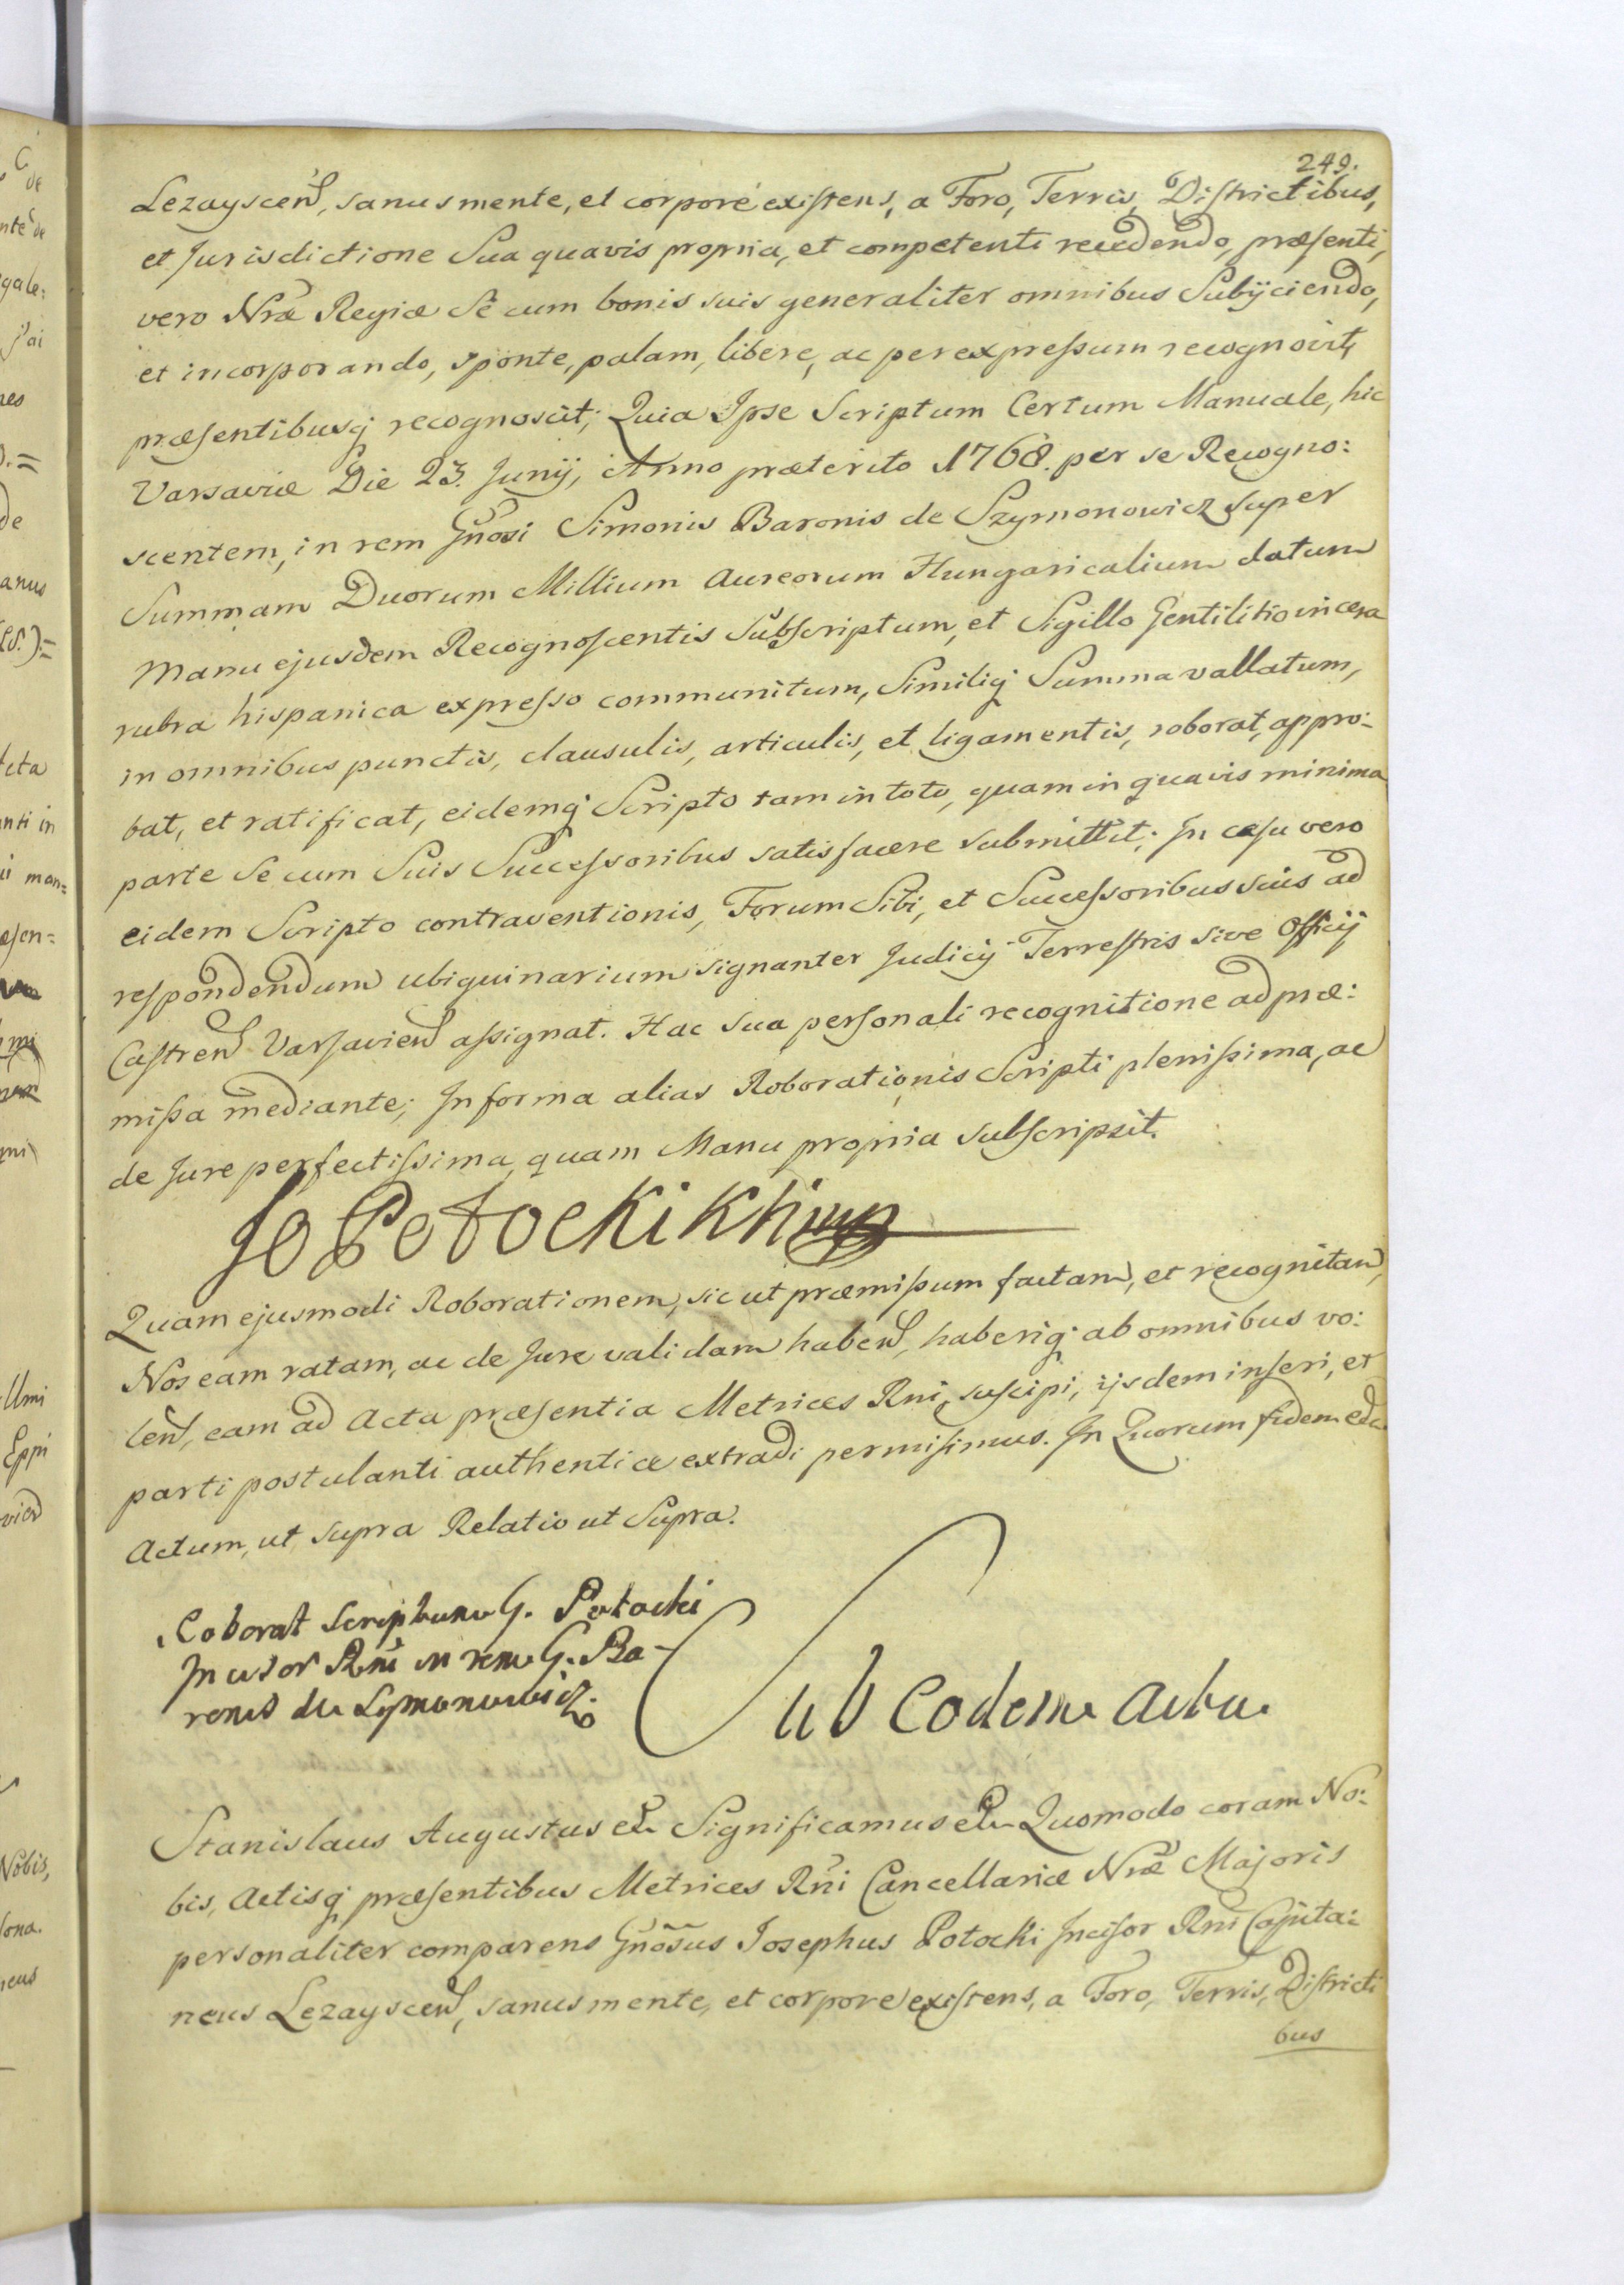 249.
Lezayscens, sanus mente, et corpore existens, a Foro, Terris, Districtibus,
et Jurisdictione Sua quavis propria, et competenti recedendo, præsenti,
vero Nræ Regiæ Se cum bonis suis generaliter omnibus Subijciendo,
et incorporando, sponte, palam, libere, ac per expressum recognovit,
præsentibusq recognoscit; Quia Ipse Scriptum Certum Manuale, hic
Varsaviæ Die 23. Junij, Anno præterito 1768. per se Recogno:
scentem, in rem Gnosi Simonis Baronis de Szymonowicz super
Summam Duorum Millium Aureorum Hungaricalium datum
Manu ejusdem Recognoscentis Subscriptum, et Sigillo Gentilitio in cera
rubra hispanica expresso communitum, Similiq Summa vallatum,
in omnibus punctis, clausulis, articulis, et ligamentis, roborat, appro:
bat, et ratificat, eidemq Scripto tam in toto, quam in quavis minima
parte Se cum Suis Successoribus satisfacere submittit; In casu vero
eidem Scripto contraventionis, Forum Sibi, et Successoribus suis ad
respondendum ubiquinarium signanter Judicij Terrestris sive Officij
Castrens Varsaviens assignat. Hac sua personali recognitione ad præ:
missa mediante; In forma alias Roborationis Scripti plenissima, ac
de Jure perfectissima, quam Manu propria subscripsit.
Jo Potocki
Quam ejusmodi Roborationem, sicut præmissum factam, et recognitam,
Nos eam ratam, ac de Jure validam habens, haberiq ab omnibus vo:
lens, eam ad Acta præsentia Metrices Rni, suscipi, ijsdem inseri, et
parti postulanti authentice extradi permisimus. In Quorum fidem etc.
Actum, ut supra Relatio ut Supra.
Roborat Scriptum G. Potocki
Incisor Rni in rem G. Ba-
ronis de Symonowicz.
Sub Eodem Actu.
Stanislaus Augustus etc Significamus etc Quomodo coram No:
bis, Actisq præsentibus Metrices Rni Cancellariæ Nræ Majoris
personaliter comparens Gnosus Josephus Potocki Incisor Rni Capita:
neus Lezayscens, sanus mente, et corpore existens, a Foro, Terris, Districti
bus